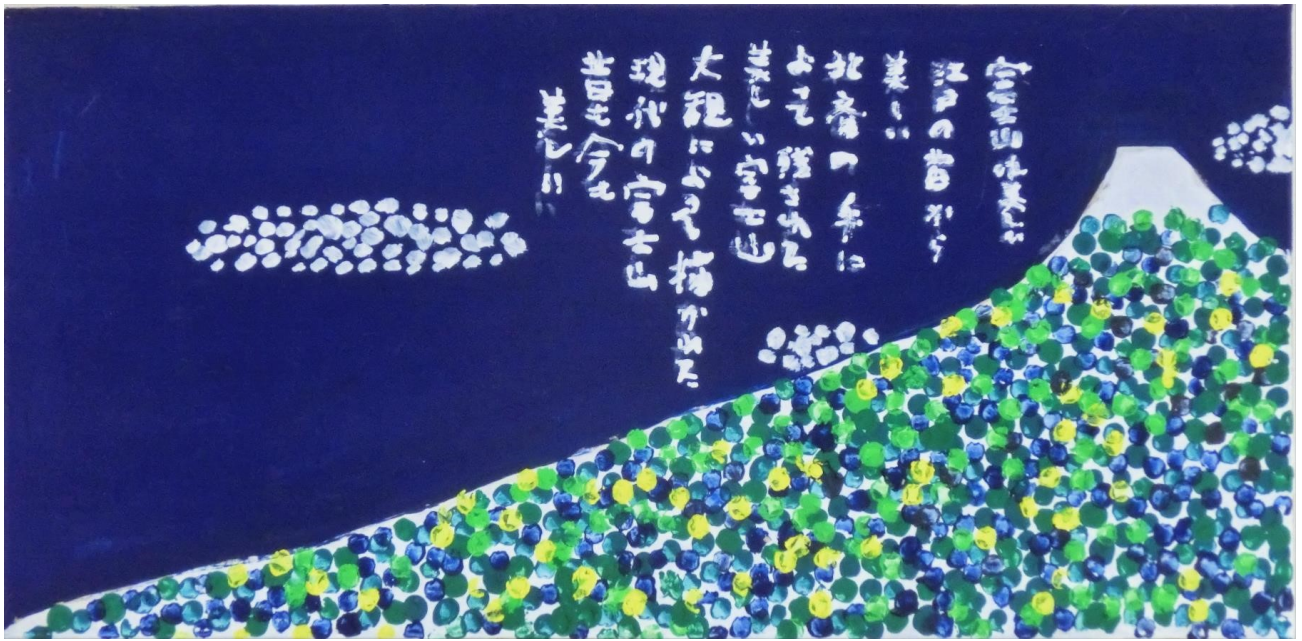 富士山は美しい
江戸の昔から
美しい
北斎の手に
よって残された
美しい富士山
大観によって描かれた
現代の富士山
昔も今も
美しい